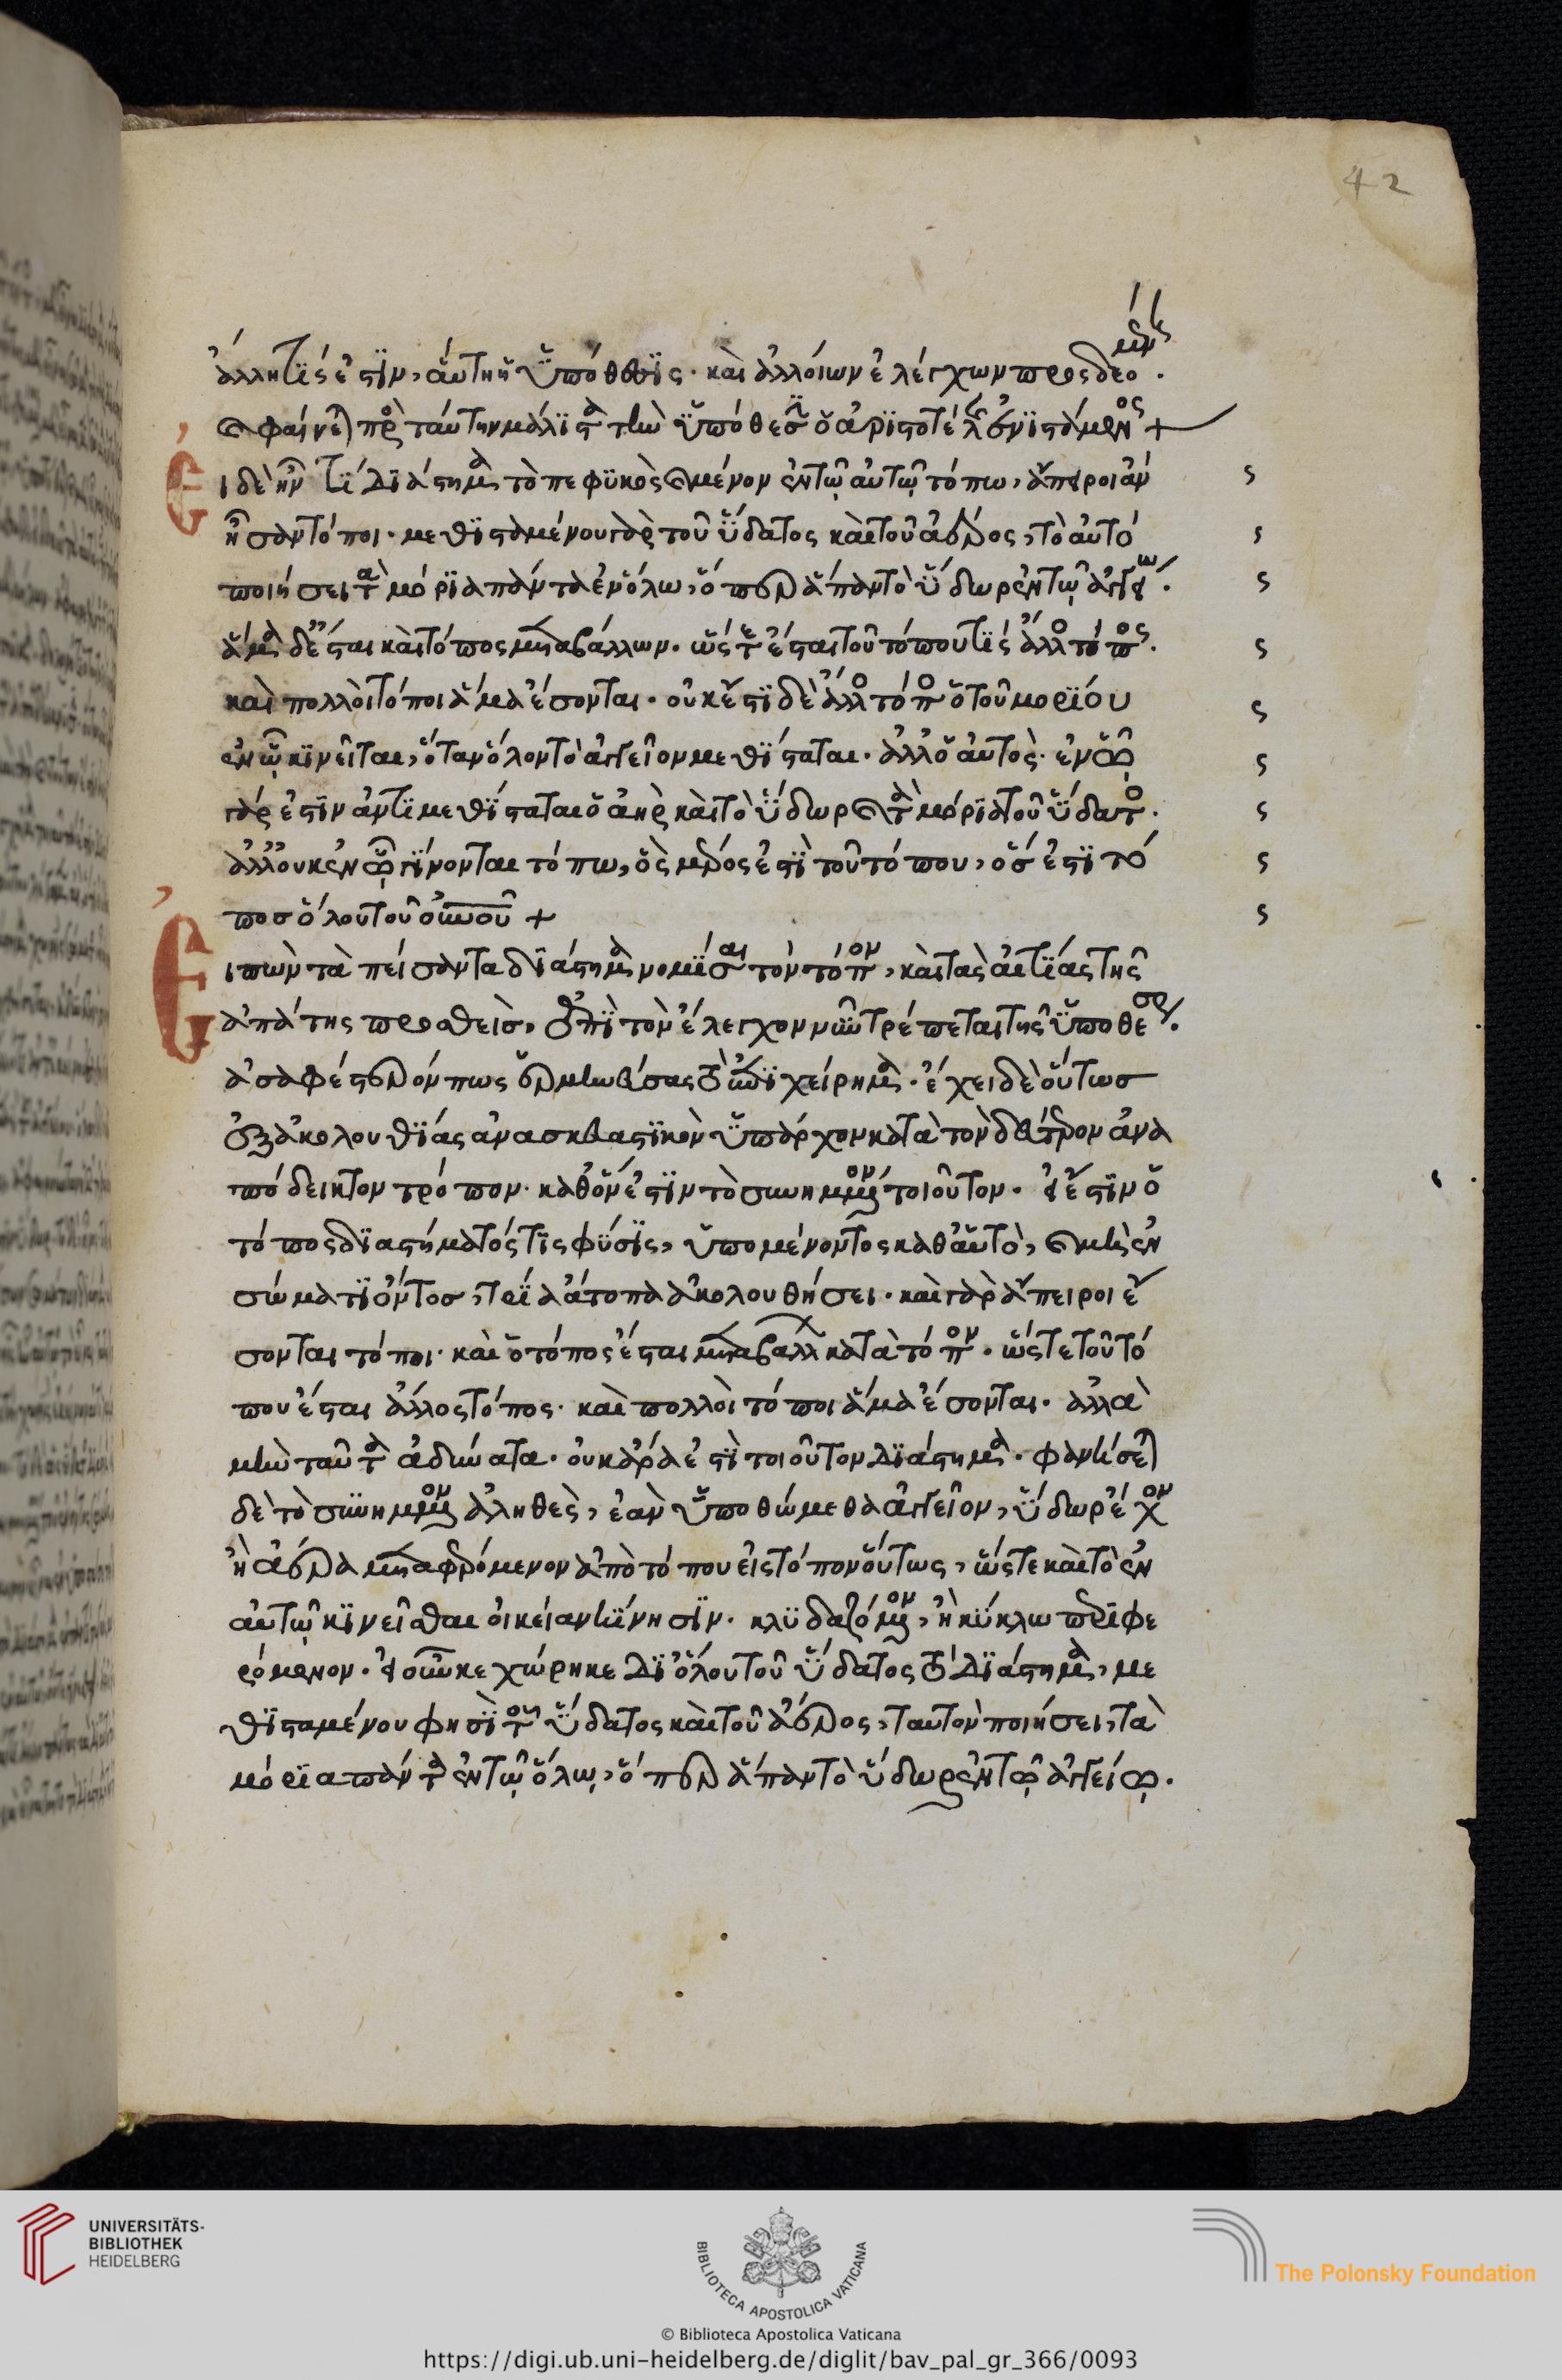 42
ἄλλη τίς ἐστιν, αὕτη ἡ ὑπόθεσις. καὶ ἀλλοίων ἐλέγχων προσδεομένη.
καὶ φαίνεται πρὸς ταύτην μάλιστα τὴν ὑπόθεσιν ὁ ἀριστοτέλης ἐνιστάμενος +
Εἰ δὲ ἦν τὶ διάστημα τὸ πεφυκὸς καὶ μένον ἐν τῷ αὐτῷ τόπω, ἄπειροι ἂν
ἦσαν τόποι. μεθισταμένου γὰρ τοῦ ὕδατος καὶ τοῦ ἀέρος, τὸ αὐτὸ
ποιήσει τὰ μόρια πάντα ἐν ὅλω, ὅπερ ἅπαν τὸ ὕδωρ ἐν τῷ ἀγγείω.
ἅμα δὲ ἔσται καὶ ὁ τόπος μεταβάλλων. ὥστε ἔσται τοῦ τόπου τίς ἄλλος τόπος.
καὶ πολλοὶ τόποι ἅμα ἔσονται. οὐκ ἔστι δὲ ἄλλος τόπος ὁ τοῦ μορίου
ἐν ᾧ κινεῖται, ὅταν ὅλον τὸ ἀγγεῖον μεθίσταται. ἀλλ' ὁ αὐτός. ἐν ᾧ
γάρ ἐστιν ἀντιμεθίσταται ὁ ἀὴρ καὶ τὸ ὕδωρ καὶ τὰ μόρια τοῦ ὕδατος.
ἀλλ' οὐκ ἐν ᾧ γίνονται τόπω, ὃς μέρος ἐστὶ τοῦ τόπου, ὅς ἐστι τό
πος ὅλου τοῦ οὐρανοῦ +
Εἰπὼν τὰ πείσαντα διάστημα νομίσαι τὸν τόπον, καὶ τὰς αἰτίας τῆς
ἀπάτης προσθεὶς, ἐπὶ τὸν ἔλεγχον νῦν τρέπεται τῆς ὑποθέσεως.
ἀσαφέστερόν πως ἑρμηνεύσας τὸ ἐπιχείρημα. ἔχει δὲ οὕτως
ἐξ ἀκολουθίας ἀνασκευαστικὸν ὑπάρχον κατὰ τὸν δεύτερον ἀνα
πόδεικτον τρόπον. καθ' ὅν ἐστιν τὸ συνημμένον τοιοῦτον. εἰ ἔστιν ὁ
τόπος διαστήματός τις φύσις, ὑπομένοντος καθ' αὑτὸ, καὶ μὴ ἐν
σώματι ὄντος, τρία ἄτοπα ἀκολουθήσει. καὶ γὰρ ἄπειροι ἔ
σονται τόποι. καὶ ὁ τόπος ἔσται μεταβάλλων κατὰ τόπον. ὥστε τοῦ τό
που ἔσται ἄλλος τόπος. καὶ πολλοὶ τόποι ἅμα ἔσονται. ἀλλὰ
μὴν ταῦτα ἀδύνατα. οὐκ ἄρα ἐστὶ τοιοῦτον διάστημα. φανήσεται
δὲ τὸ συνημμένον ἀληθὲς, ἐὰν ὑποθώμεθα ἀγγεῖον, ὕδωρ ἔχον
ἢ ἀέρα μεταφερόμενον ἀπὸ τόπου εἰς τόπον οὕτως, ὥστε καὶ τὸ ἐν
αὐτῷ κινεῖσθαι οἰκείαν κίνησιν. κλυδαζόμενον, ἢ κύκλω περιφε
ρόμενον. εἰ οὖν κεχώρηκε δι' ὅλου τοῦ ὕδατος τὸ διάστημα, με
θισταμένου φησὶ τοῦ ὕδατος καὶ τοῦ ἀέρος, ταυτὸν ποιήσει, τὰ
μόρια πάντα ἐν τῷ ὅλῳ, ὅπερ ἅπαν τὸ ὕδωρ ἐν τῷ ἀγγείῳ.
UNIVERSITÄTS-
BIBLIOTHEK
HEIDELBERG
BIBLIOTECA APOSTOLICA VATICANA
The Polonsky Foundation
© Biblioteca Apostolica Vaticana
https://digi.ub.uni-heidelberg.de/diglit/bav_pal_gr_366/0093